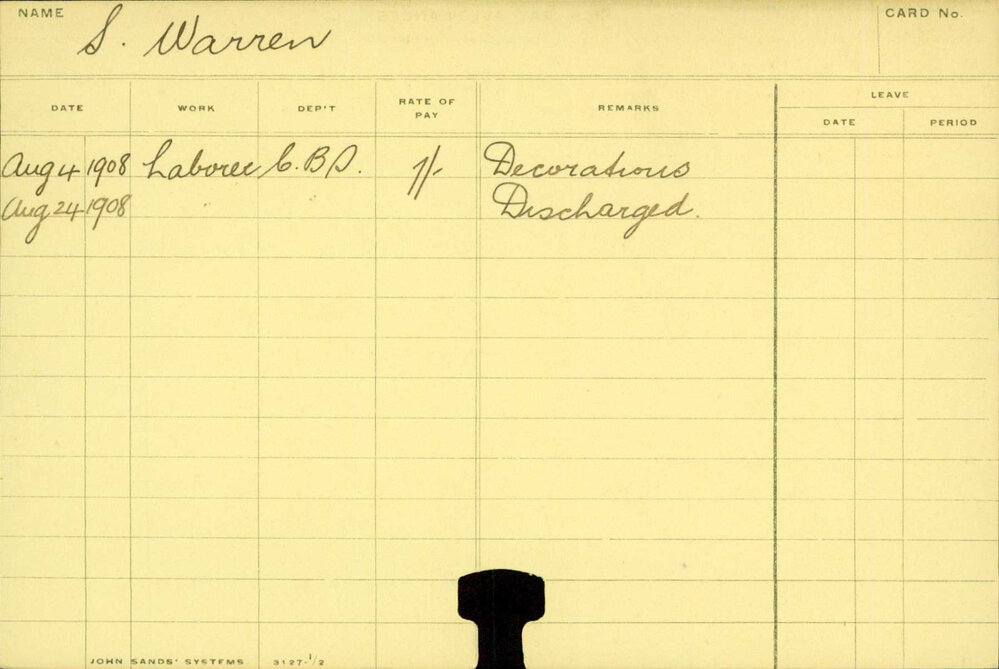 NAME S. Warren CARD No.
LEAVE
DATE WORK DEP'T RATE OF PAY REMARKS DATE PERIOD
Aug 4 1908 Laborer C.B.S. Decorations
Aug 24 1908 Discharged.
JOHN SANDS' SYSTEMS 3127-1/2